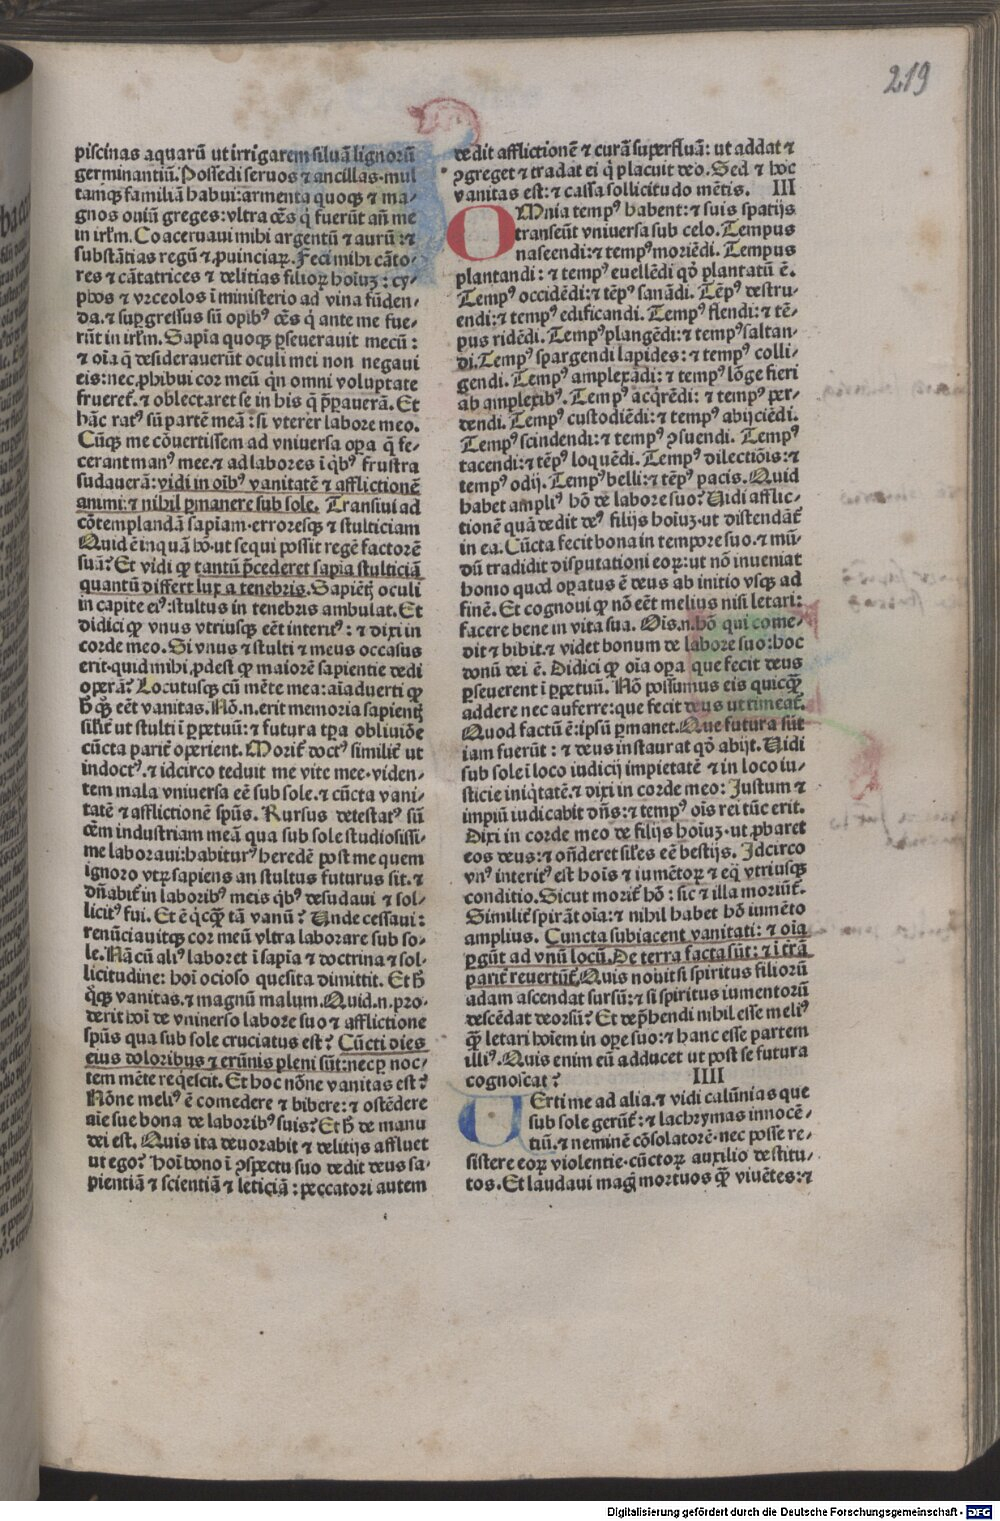 219
piscinas aquarū ut irrigarem siluā lignorū
germinantiū. Possedi seruos ⁊ ancillas·mul
tamqꝫ familiā habui: armenta quoqꝫ ⁊ ma-
gnos ouiū greges: vltra oēs q̇ fuerūt añ me
in irlm̄. Coaceruaui mihi argentū ⁊ aurū: ⁊
substātias regū ⁊ ꝓuinciaꝝ. Feci mihi cāto-
res ⁊ cātatrices ⁊ delitias filioꝝ hoīuꝫ: cy-
phos ⁊ vrceolos ī ministerio ad vina fūden-
da. ⁊ suꝑgressus sū opibꝰ oēs q̇ ante me fue-
rūt in irlm̄. Sapīa quoqꝫ ꝑseuerauit mecū:
⁊ oīa q̄ desiderauerūt oculi mei non negaui
eis: nec ꝓhibui cor meū q̇n omni voluptate
frueret᷑. ⁊ oblectaret se in his q̄ p̄ꝑauerā. Et
hāc ratꝰ sū partē meā: si vterer labore meo.
Cūqꝫ me cōuertissem ad vniuersa oꝑa q̄ fe-
cerant manꝰ mee. ⁊ ad labores ī q̇bꝰ frustra
sudauerā: vidi in oībꝰ vanitatē ⁊ afflictionē
animi: ⁊ nihil ꝑmanere sub sole. Transiui ad
cōtemplandā sapīam·erroresqꝫ ⁊ stulticiam
Quid ē inquā hō·ut sequi possit regē factorē
suū? Et vidi ꝙ tantū p̄cederet sapīa stulticiā
quantū differt lux a tenebris. Sapiētꝭ oculi
in capite eiꝰ: stultus in tenebris ambulat. Et
didici ꝙ vnus vtriusqꝫ eēt interitꝰ: ⁊ dixi in
corde meo. Si vnus ⁊ stulti ⁊ meus occasus
erit·quid mihi ꝓdest ꝙ maiorē sapientie dedi
operā? Locutusqꝫ cū mēte mea: aīaduerti ꝙ
h̄ qꝫ eēt vanitas. Nō.n.erit memoria sapientꝭ
silit᷑ ut stulti ī ꝑpetuū: ⁊ futura tꝑa obliuiōe
cūcta parit᷑ operient. Morit᷑ doctꝰ similit᷑ ut
indoctꝰ. ⁊ idcirco teduit me vite mee·viden-
tem mala vniuersa eē sub sole. ⁊ cūcta vani-
tatē ⁊ afflictionē spūs. Rursus detestatꝰ sū
oēm industriam meā qua sub sole studiosissi-
me laboraui: habiturꝰ heredē post me quem
ignoro vtꝝ sapiens an stultus futurus sit. ⁊
dn̄abit᷑ in laboribꝰ meis q̇bꝰ desudaui ⁊ sol-
licitꝰ fui. Et ē q̇cꝗ̄ tā vanū? Unde cessaui:
renūciauitqꝫ cor meū vltra laborare sub so-
le. Nā cū aliꝰ laboret ī sapīa ⁊ doctrina ⁊ sol-
licitudine: hoī ocioso quesita dimittit. Et h̄
q̊qꝫ vanitas. ⁊ magnū malum. Quid.n.pro-
derit hoī de vniuerso labore suo ⁊ afflictione
spūs qua sub sole cruciatus est? Cūcti dies
eius doloribus ⁊ erūnis pleni sūt: nec ꝑ noc-
tem mēte reqescit. Et hoc nōne vanitas est?
Nōne meliꝰ ē comedere ⁊ bibere: ⁊ ostēdere
aīe sue bona de laboribꝰ suis? Et h̄ de manu
dei est. Quis ita deuorabit ⁊ delitijs affluet
ut ego? Hoī bono ī ꝯspectu suo dedit deus sa-
pientiā ⁊ scientiā ⁊ leticiā: peccatori autem
dedit afflictionē ⁊ curā suꝑfluā: ut addat ⁊
ꝯgreget ⁊ tradat ei q̇ placuit deo. Sed ⁊ hoc
vanitas est: ⁊ cassa sollicitudo mētis. III
OMnia tempꝰ habent: ⁊ suis spatijs
transeūt vniuersa sub celo. Tempus
nascendi: ⁊ tempꝰ moriēdi. Tempus
plantandi: ⁊ tempꝰ euellēdi qd̓ plantatū ē.
Tempꝰ occidēdi: ⁊ tēpꝰ sanādi. Tēpꝰ destru-
endi: ⁊ tempꝰ edificandi. Tempꝰ flendi: ⁊ tē-
pus ridēdi. Tempꝰ plangēdi: ⁊ tempꝰ saltan-
di. Tempꝰ spargendi lapides: ⁊ tempꝰ colli-
gendi. Tempꝰ amplexādi: ⁊ tempꝰ lōge fieri
ab amplexibꝰ. Tempꝰ acq̇rēdi: ⁊ tempꝰ per-
dendi. Tempꝰ custodiēdi: ⁊ tempꝰ abijciēdi.
Tempꝰ scindendi: ⁊ tempꝰ ꝯsuendi. Tempꝰ
tacendi: ⁊ tēpꝰ loquēdi. Tempꝰ dilectiōis: ⁊
tempꝰ odij. Tempꝰ belli: ⁊ tēpꝰ pacis. Quid
habet ampliꝰ hō de labore suo? Uidi afflic-
tionē quā dedit deꝰ filijs hoīuꝫ·ut distendāt᷑
in ea. Cūcta fecit bona in tempore suo. ⁊ mū-
dū tradidit disputationi eoꝝ: ut nō inueniat
homo quod oꝑatus ē deus ab initio vsqꝫ ad
finē. Et cognoui ꝙ nō eēt melius nisi letari:
facere bene in vita sua. Ois.n.hō qui come-
dit ⁊ bibit. ⁊ videt bonum de labore suo: hoc
donū dei ē. Didici ꝙ oīa oꝑa que fecit deus
ꝑseuerent ī ꝑpetuū. Nō possumus eis quicꝗ̄
addere nec auferre: que fecit deus ut timeat᷑.
Quod factū ē: ipsū ꝑmanet. Que futura sūt
iam fuerūt: ⁊ deus instaurat qd̓ abijt. Uidi
sub sole ī loco iudicij impietatē ⁊ in loco iu-
sticie iniq̇tatē. ⁊ dixi in corde meo: Justum ⁊
impiū iudicabit dn̄s: ⁊ tempꝰ oīs rei tūc erit.
Dixi in corde meo de filijs hoīuꝫ·ut ꝓbaret
eos deus: ⁊ on̄deret siles eē bestijs. Jdcirco
vnꝰ interitꝰ est hoīs ⁊ iumētoꝝ ⁊ eq̄ vtriusqꝫ
conditio. Sicut morit᷑ hō: sic ⁊ illa moriūt᷑.
Similit᷑ spirāt oīa: ⁊ nihil habet hō iumēto
amplius. Cuncta subiacent vanitati: ⁊ oīa
ꝑgūt ad vnū locū. De terra facta sūt: ⁊ ī t̄rā
parit᷑ reuertūt᷑. Quis nouit si spiritus filiorū
adam ascendat sursū: ⁊ si spiritus iumentorū
descēdat deorsū? Et dep̄hendi nihil esse meliꝰ
ꝗ̄ letari hoīem in oꝑe suo: ⁊ hanc esse partem
illiꝰ. Quis enim eū adducet ut post se futura
cognoscat? IIII
UErti me ad alia. ⁊ vidi calūnias que
sub sole gerūt᷑: ⁊ lachrymas innocē-
tiū. ⁊ neminē cōsolatorē·nec posse re-
sistere eoꝝ violentie·cūctoꝝ auxilio destitu-
tos. Et laudaui magꝭ mortuos ꝗ̄ viuētes: ⁊
Digitalisierung gefördert durch die Deutsche Forschungsgemeinschaft - DFG